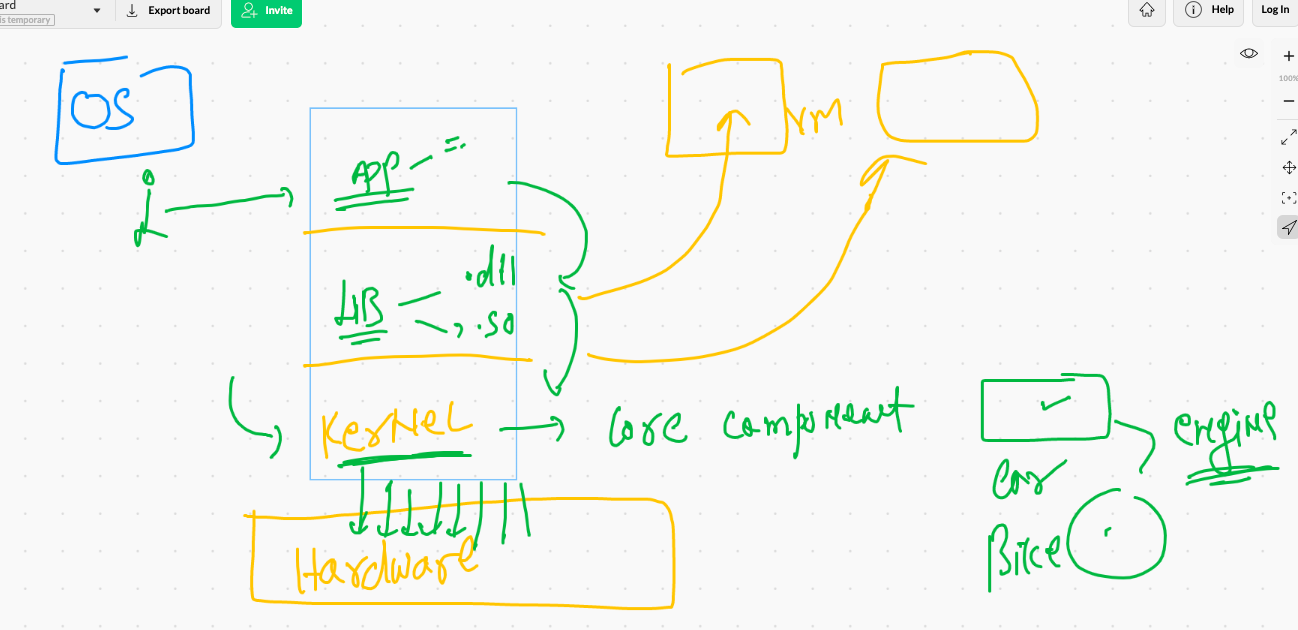 ard
is temporary
Export board
Invite
Help
Log In
100%
OS
APP
LIB
.dll
.so
Kernel
Core component
Hardware
VM
Car
Bike
engine